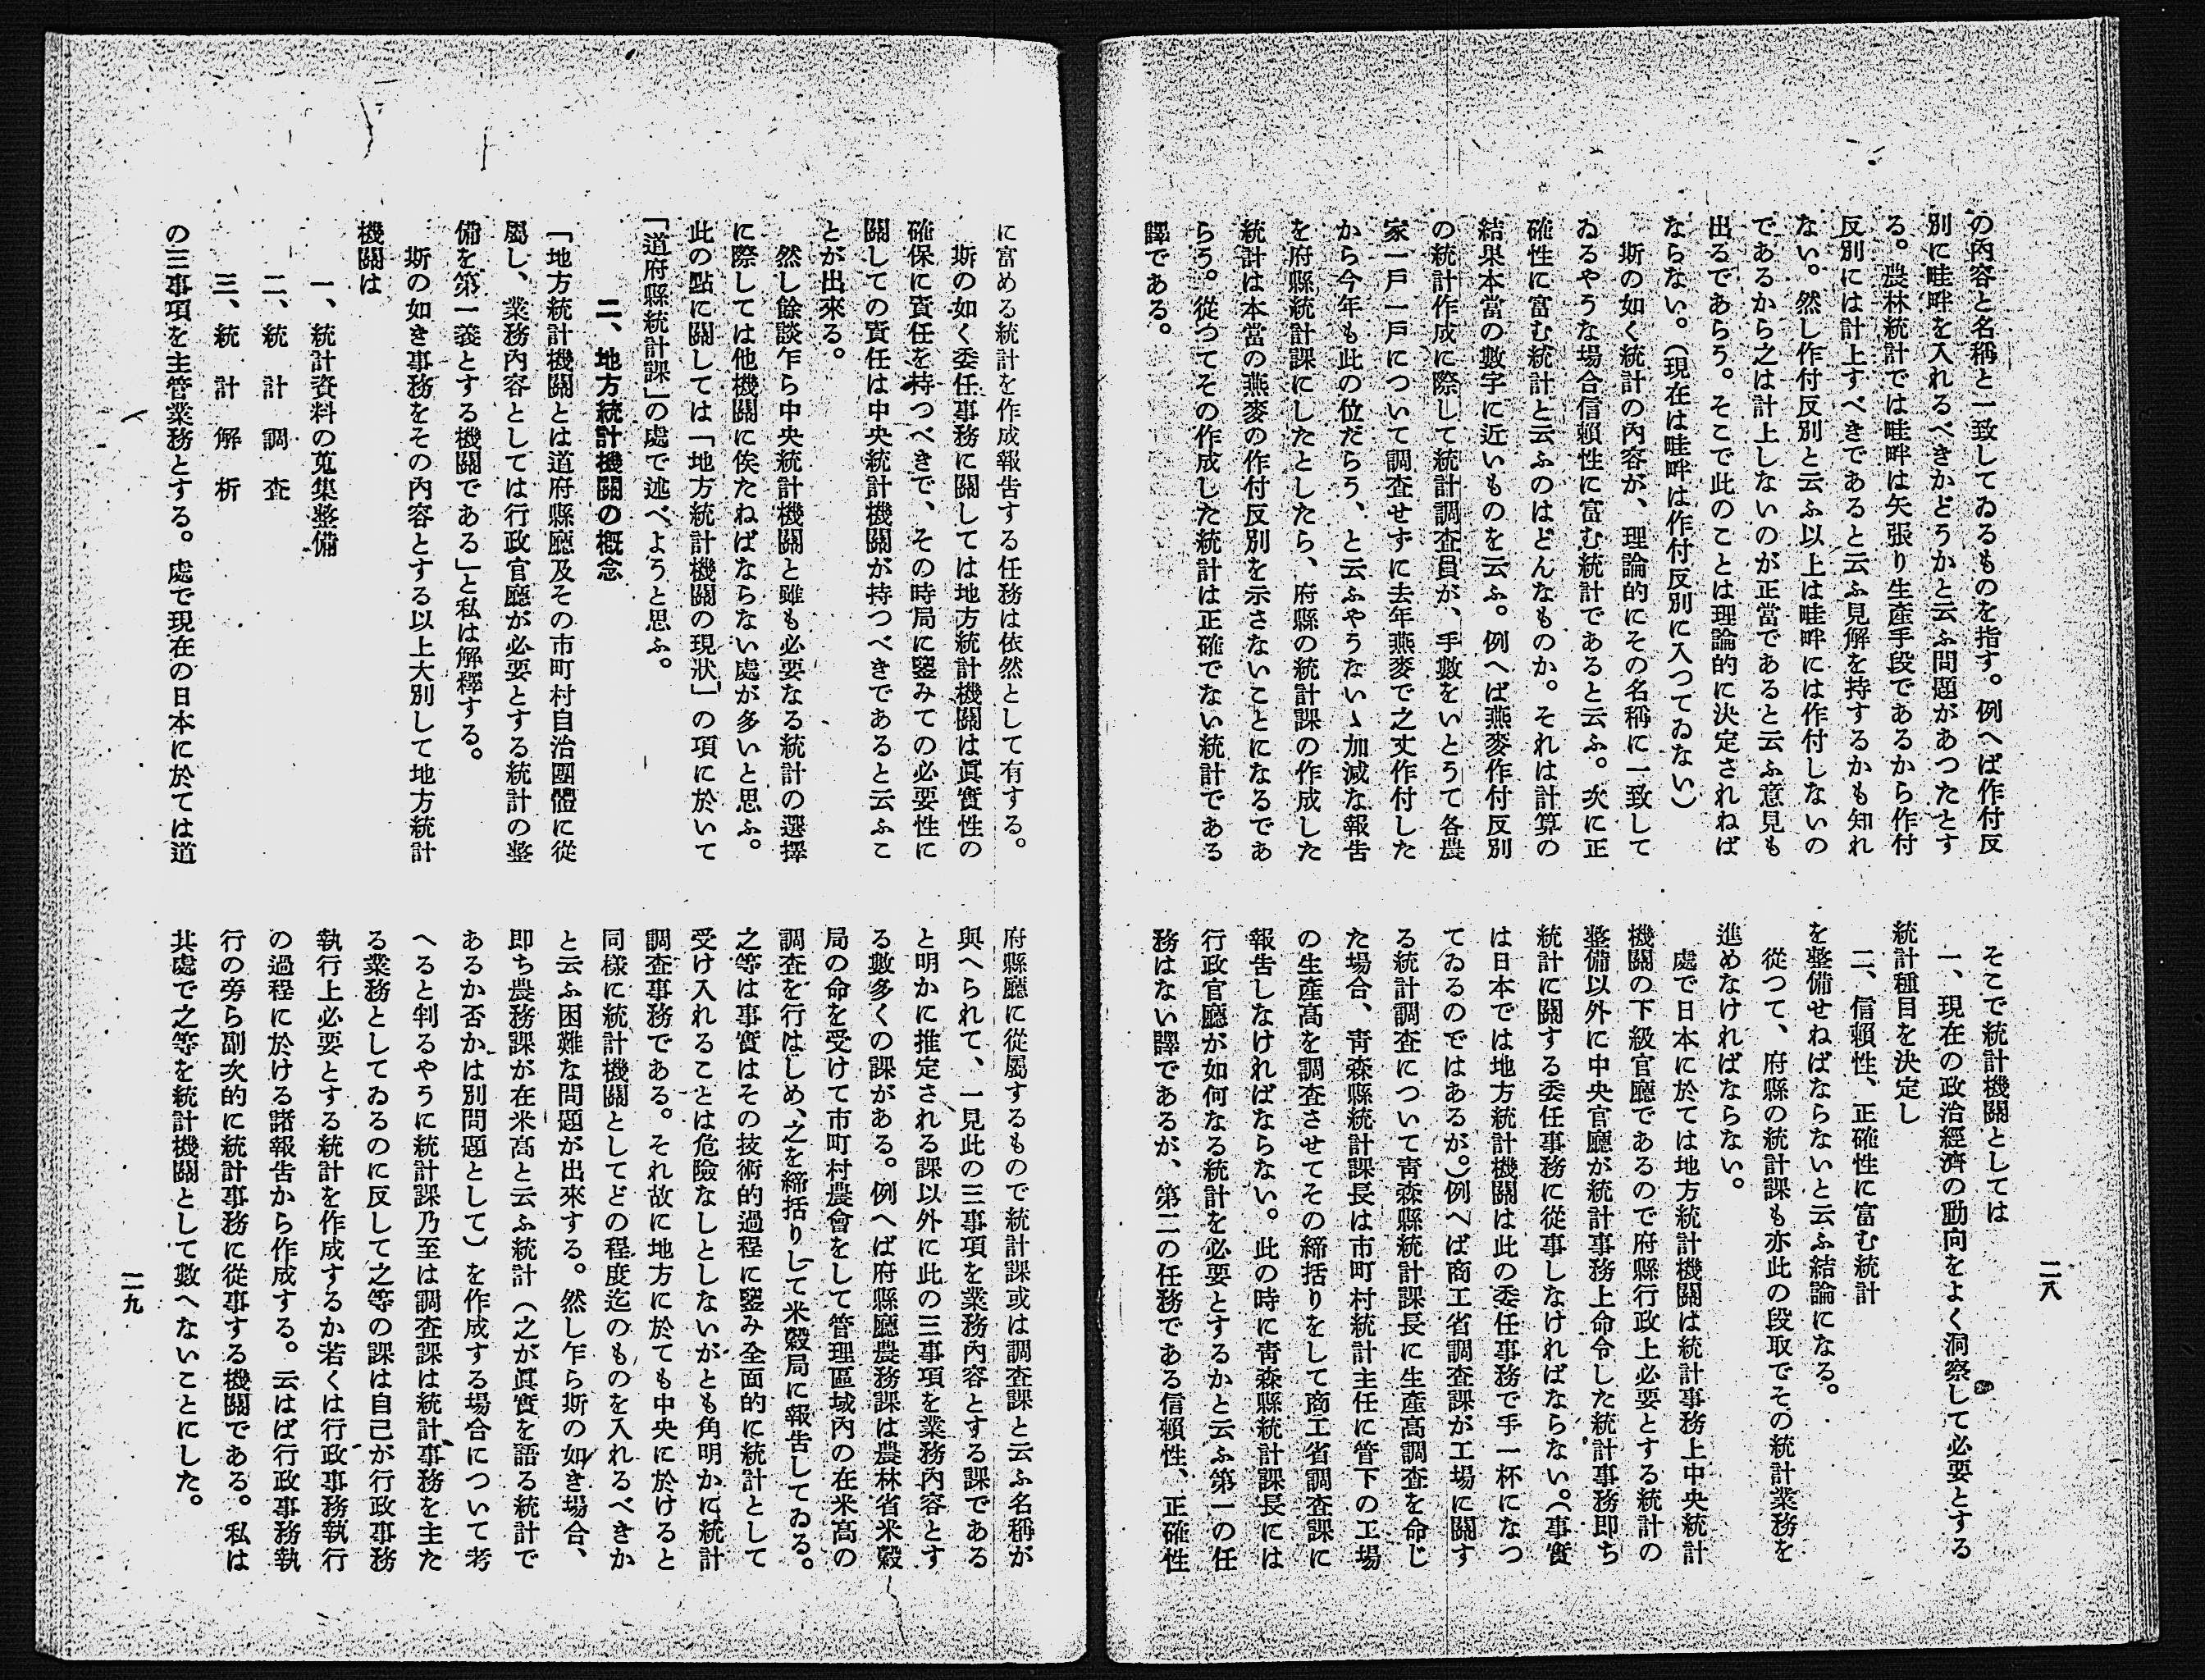 二八
の內容と名稱と一致してゐるものを指す。例へば作付反
別に畦畔を入れるべきかどうかと云ふ問題があつたとす
る。農林統計では畦畔は矢張り生產手段であるから作付
反別には計上すべきであると云ふ見解を持するかも知れ
ない。然し作付反別と云ふ以上は畦畔には作付しないの
であるから之は計上しないのが正當であると云ふ意見も
出るであらう。そこで此のことは理論的に決定されねば
ならない。（現在は畦畔は作付反別に入つてゐない）
斯の如く統計の內容が、理論的にその名稱に一致して
ゐるやうな場合信賴性に富む統計であると云ふ。次に正
確性に富む統計と云ふのはどんなものか。それは計算の
結果本當の數字に近いものを云ふ。例へば燕麥作付反別
の統計作成に際して統計調査員が、手數をいとうて各農
家一戶一戶について調査せずに去年燕麥で之丈作付した
から今年も此の位だらう、と云ふやうないゝ加減な報告
を府縣統計課にしたとしたら、府縣の統計課の作成した
統計は本當の燕麥の作付反別を示さないことになるであ
らう。從つてその作成した統計は正確でない統計である
譯である。
そこで統計機關としては
一、現在の政治經濟の動向をよく洞察して必要とする
統計種目を決定し
二、信賴性、正確性に富む統計
を整備せねばならないと云ふ結論になる。
從つて、府縣の統計課も亦此の段取でその統計業務を
進めなければならない。
處で日本に於ては地方統計機關は統計事務上中央統計
機關の下級官廳であるので府縣行政上必要とする統計の
整備以外に中央官廳が統計事務上命令した統計事務卽ち
統計に關する委任事務に從事しなければならない。（事實
は日本では地方統計機關は此の委任事務で手一杯になつ
てゐるのではあるが。）例へば商工省調査課が工場に關す
る統計調査について靑森縣統計課長に生產高調査を命じ
た場合、靑森縣統計課長は市町村統計主任に管下の工場
の生產高を調査させてその締括りをして商工省調査課に
報告しなければならない。此の時に靑森縣統計課長には
行政官廳が如何なる統計を必要とするかと云ふ第一の任
務はない譯であるが、第二の任務である信賴性、正確性
に富める統計を作成報告する任務は依然として有する。
斯の如く委任事務に關しては地方統計機關は眞實性の
確保に責任を持つべきで、その時局に鑒みての必要性に
關しての責任は中央統計機關が持つべきであると云ふこ
とが出來る。
然し餘談乍ら中央統計機關と雖も必要なる統計の選擇
に際しては他機關に俟たねばならない處が多いと思ふ。
此の點に關しては「地方統計機關の現狀」の項に於いて
「道府縣統計課」の處で述べようと思ふ。
二、地方統計機關の槪念
「地方統計機關とは道府縣廳及その市町村自治團體に從
屬し、業務內容としては行政官廳が必要とする統計の整
備を第一義とする機關である」と私は解釋する。
斯の如き事務をその內容とする以上大別して地方統計
機關は
一、統計資料の蒐集整備
二、統計調査
三、統計解析
の三事項を主管業務とする。處で現在の日本に於ては道
府縣廳に從屬するもので統計課或は調査課と云ふ名稱が
與へられて、一見此の三事項を業務內容とする課である
と明かに推定される課以外に此の三事項を業務內容とす
る數多くの課がある。例へば府縣廳農務課は農林省米穀
局の命を受けて市町村農會をして管理區域內の在米高の
調査を行はしめ、之を締括りして米穀局に報告してゐる。
之等は事實はその技術的過程に鑒み全面的に統計として
受け入れることは危險なしとしないがとも角明かに統計
調査事務である。それ故に地方に於ても中央に於けると
同樣に統計機關としてどの程度迄のものを入れるべきか
と云ふ困難な問題が出來する。然し乍ら斯の如き場合、
卽ち農務課が在米高と云ふ統計（之が眞實を語る統計で
あるか否かは別問題として）を作成する場合について考
へると判るやうに統計課乃至は調査課は統計事務を主た
る業務としてゐるのに反して之等の課は自己が行政事務
執行上必要とする統計を作成するか若くは行政事務執行
の過程に於ける諸報告から作成する。云はば行政事務執
行の旁ら副次的に統計事務に從事する機關である。私は
其處で之等を統計機關として數へないことにした。
二九